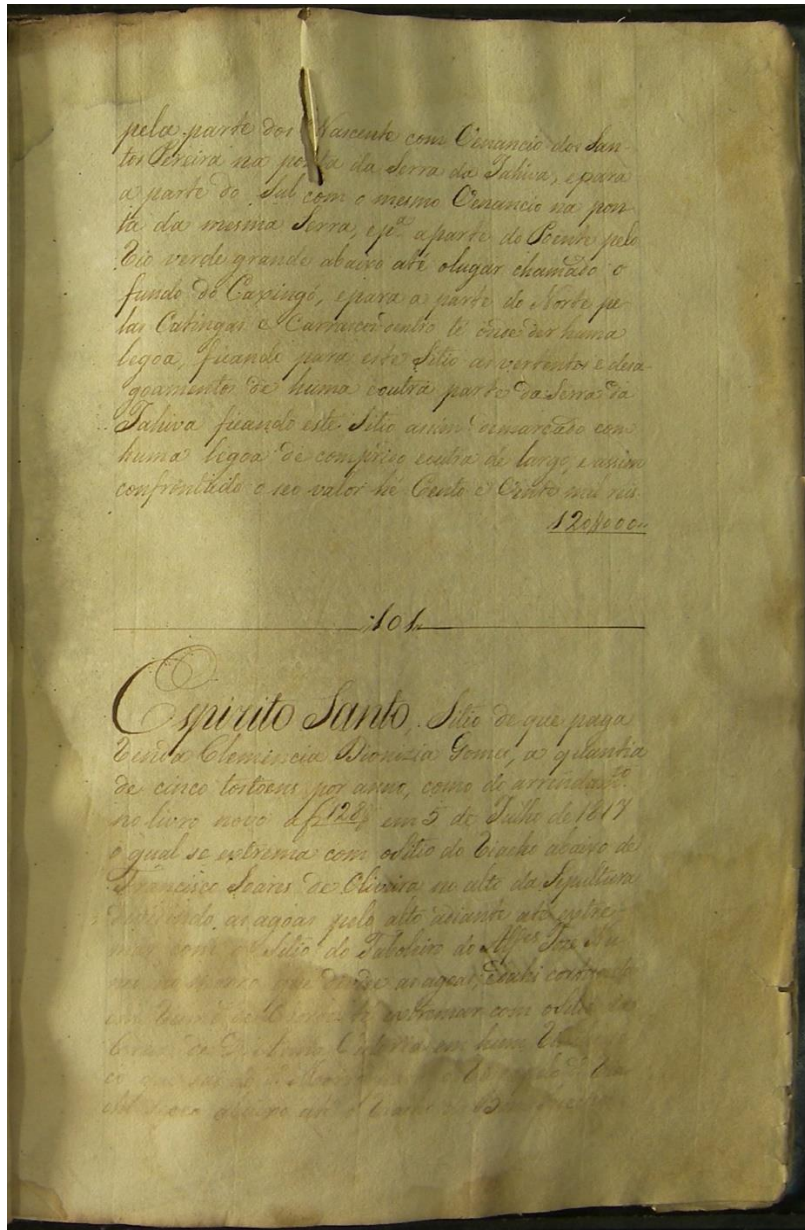 pela parte dos Nascente com Venancio dos San
tos Pereira na ponta da Serra da Tahiva, e para
a parte do Sul com o mesmo Venancio na pon
ta da mesma Serra, e p.ª a parte do Poente pelo
Rio verde grande abaixo até olugar chamado o
fundo do Capingó, epara a parte do Norte pe
las Catingas e Carrascos dentro té onde der huma
legoa, ficando para este Sitio as vertentes e desa
goamentos de huma eoutra parte da Serra da
Tahiva ficando este Sitio assim demarcado com
huma legoa de comprido eoutra de largo, e assim
confrontado o seo valor hé Cento e Vinte mil reis
120$000
101
Espirito Santo. Sitio de que paga
renda Clemencia Dionizia Gomes, a quantia
de cinco tostoens por anno, como do arrendam.to
no livro novo a f 128 em 5 de Julho de 1817
o qual se extrema com oSitio do Riacho abaixo de
Francisco Soares de Oliveira no alto da Sepultura
dividindo as agoas pelo alto adiante até extre
mar com o Sitio do Taboleiro do Alferes Joze Nu
no morro que divide as agoas, e dahi
extremar com oSitio
em hum